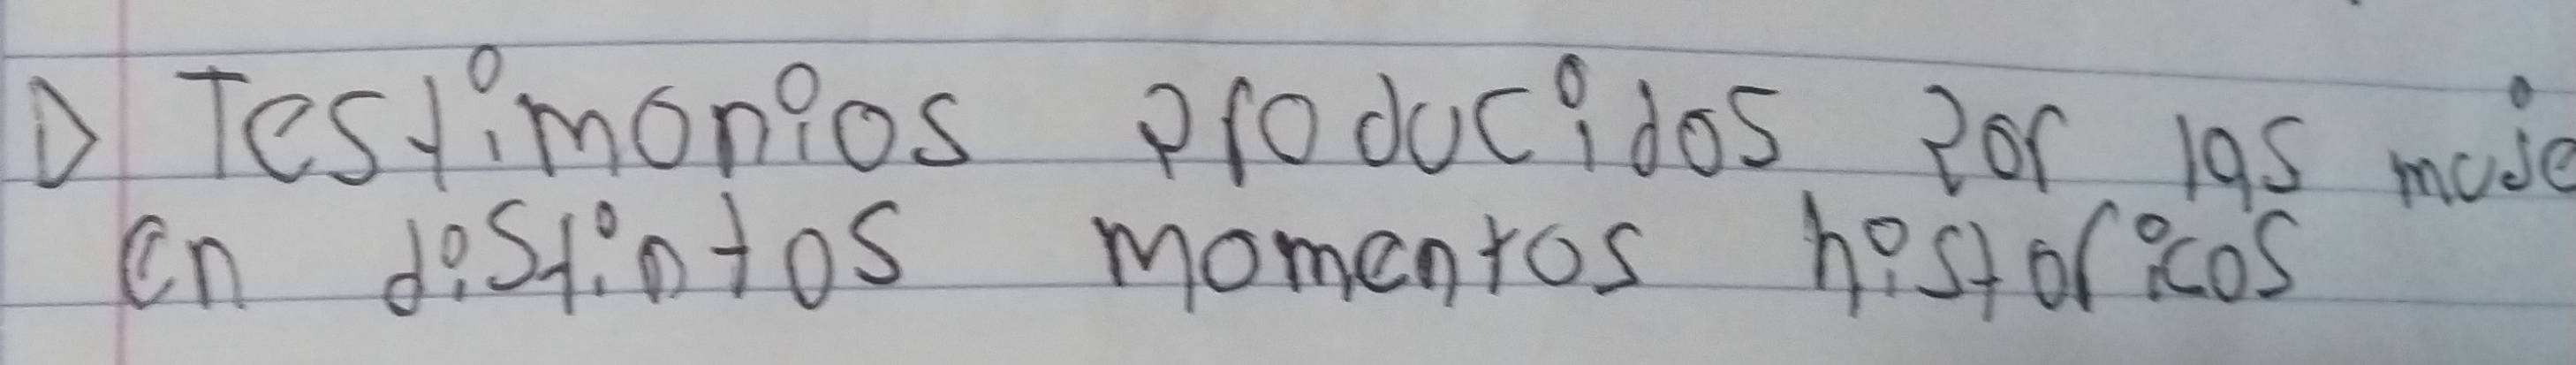 D Testimonios producidos por las muje
en distintos momentos historicos